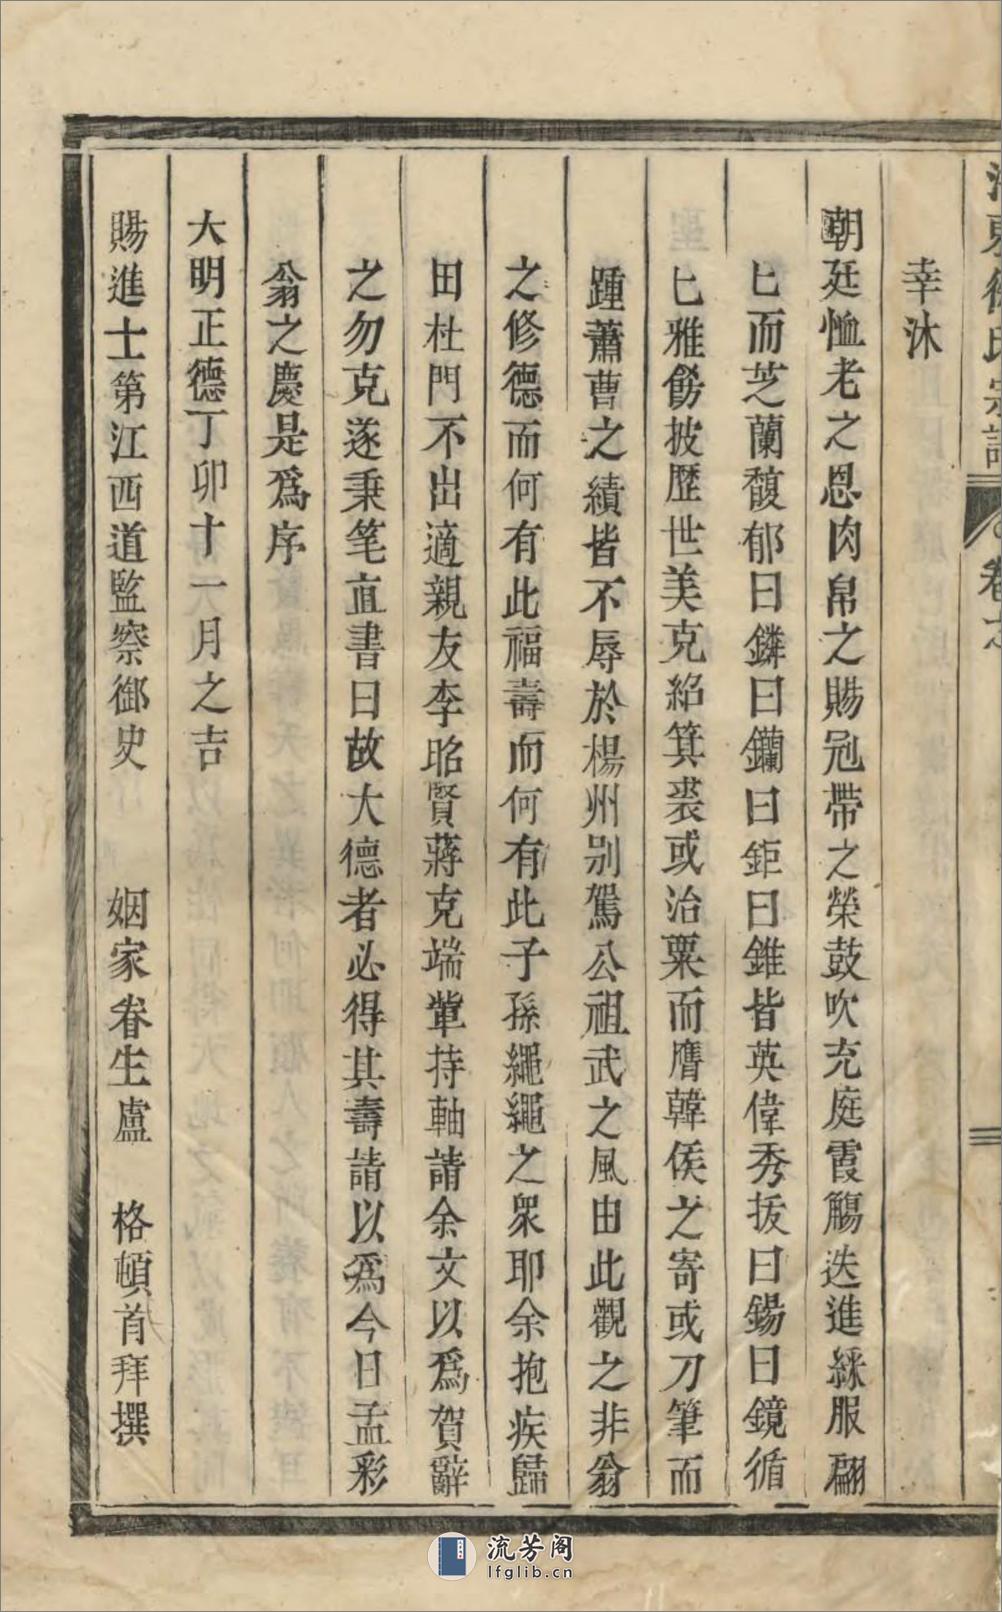 幸沐
朝廷恤老之恩肉帛之賜冠帶之榮鼓吹充庭霞觴迭進綵服翩
已而芝蘭馥郁曰鏻曰鑭曰鉅曰錐皆英偉秀拔曰錫曰鏡循
已雅飭披歷世美克紹箕裘或治粟而膺韓侯之寄或刀筆而
踵蕭曹之績皆不辱於楊州别駕公祖武之風由此觀之非翁
之修德而何有此福壽而何有此子孫繩繩之衆耶余抱疾歸
田杜門不出適親友李昭賢蔣克端軰持軸請余文以為賀辭
之勿克遂秉笔直書曰故大德者必得其壽請以為今日孟彩
翁之慶是爲序
大明正德丁卯十一月之吉
賜進士第江西道監察御史 姻家眷生盧 格頓首拜撰
流芳阁
lfglib.cn